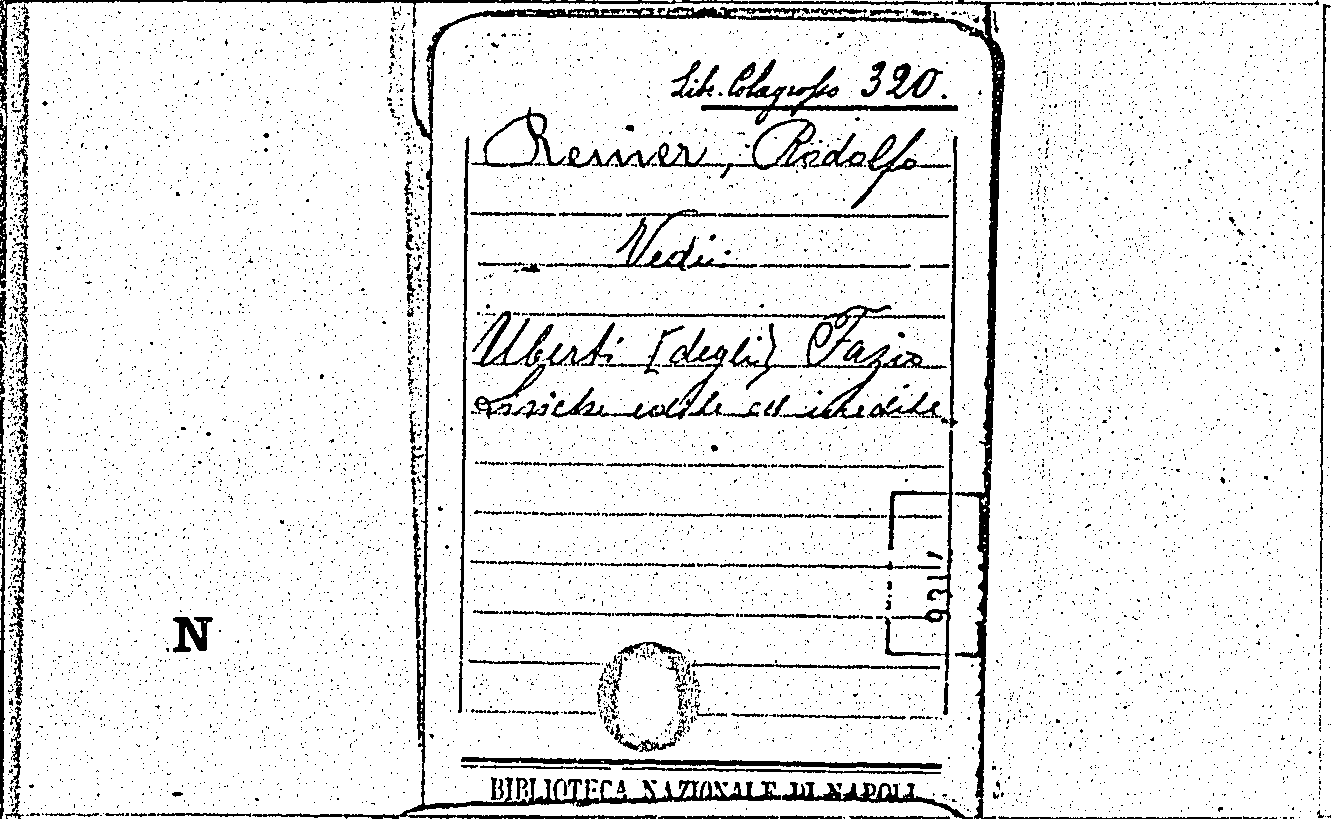 Lib. Colagrosso 320.
Renier, Rodolfo
Vedi:
Uberti [degli] Fazio
Liriche edite ed inedite
931
N
BIBLIOTECA NAZIONALE DI NAPOLI